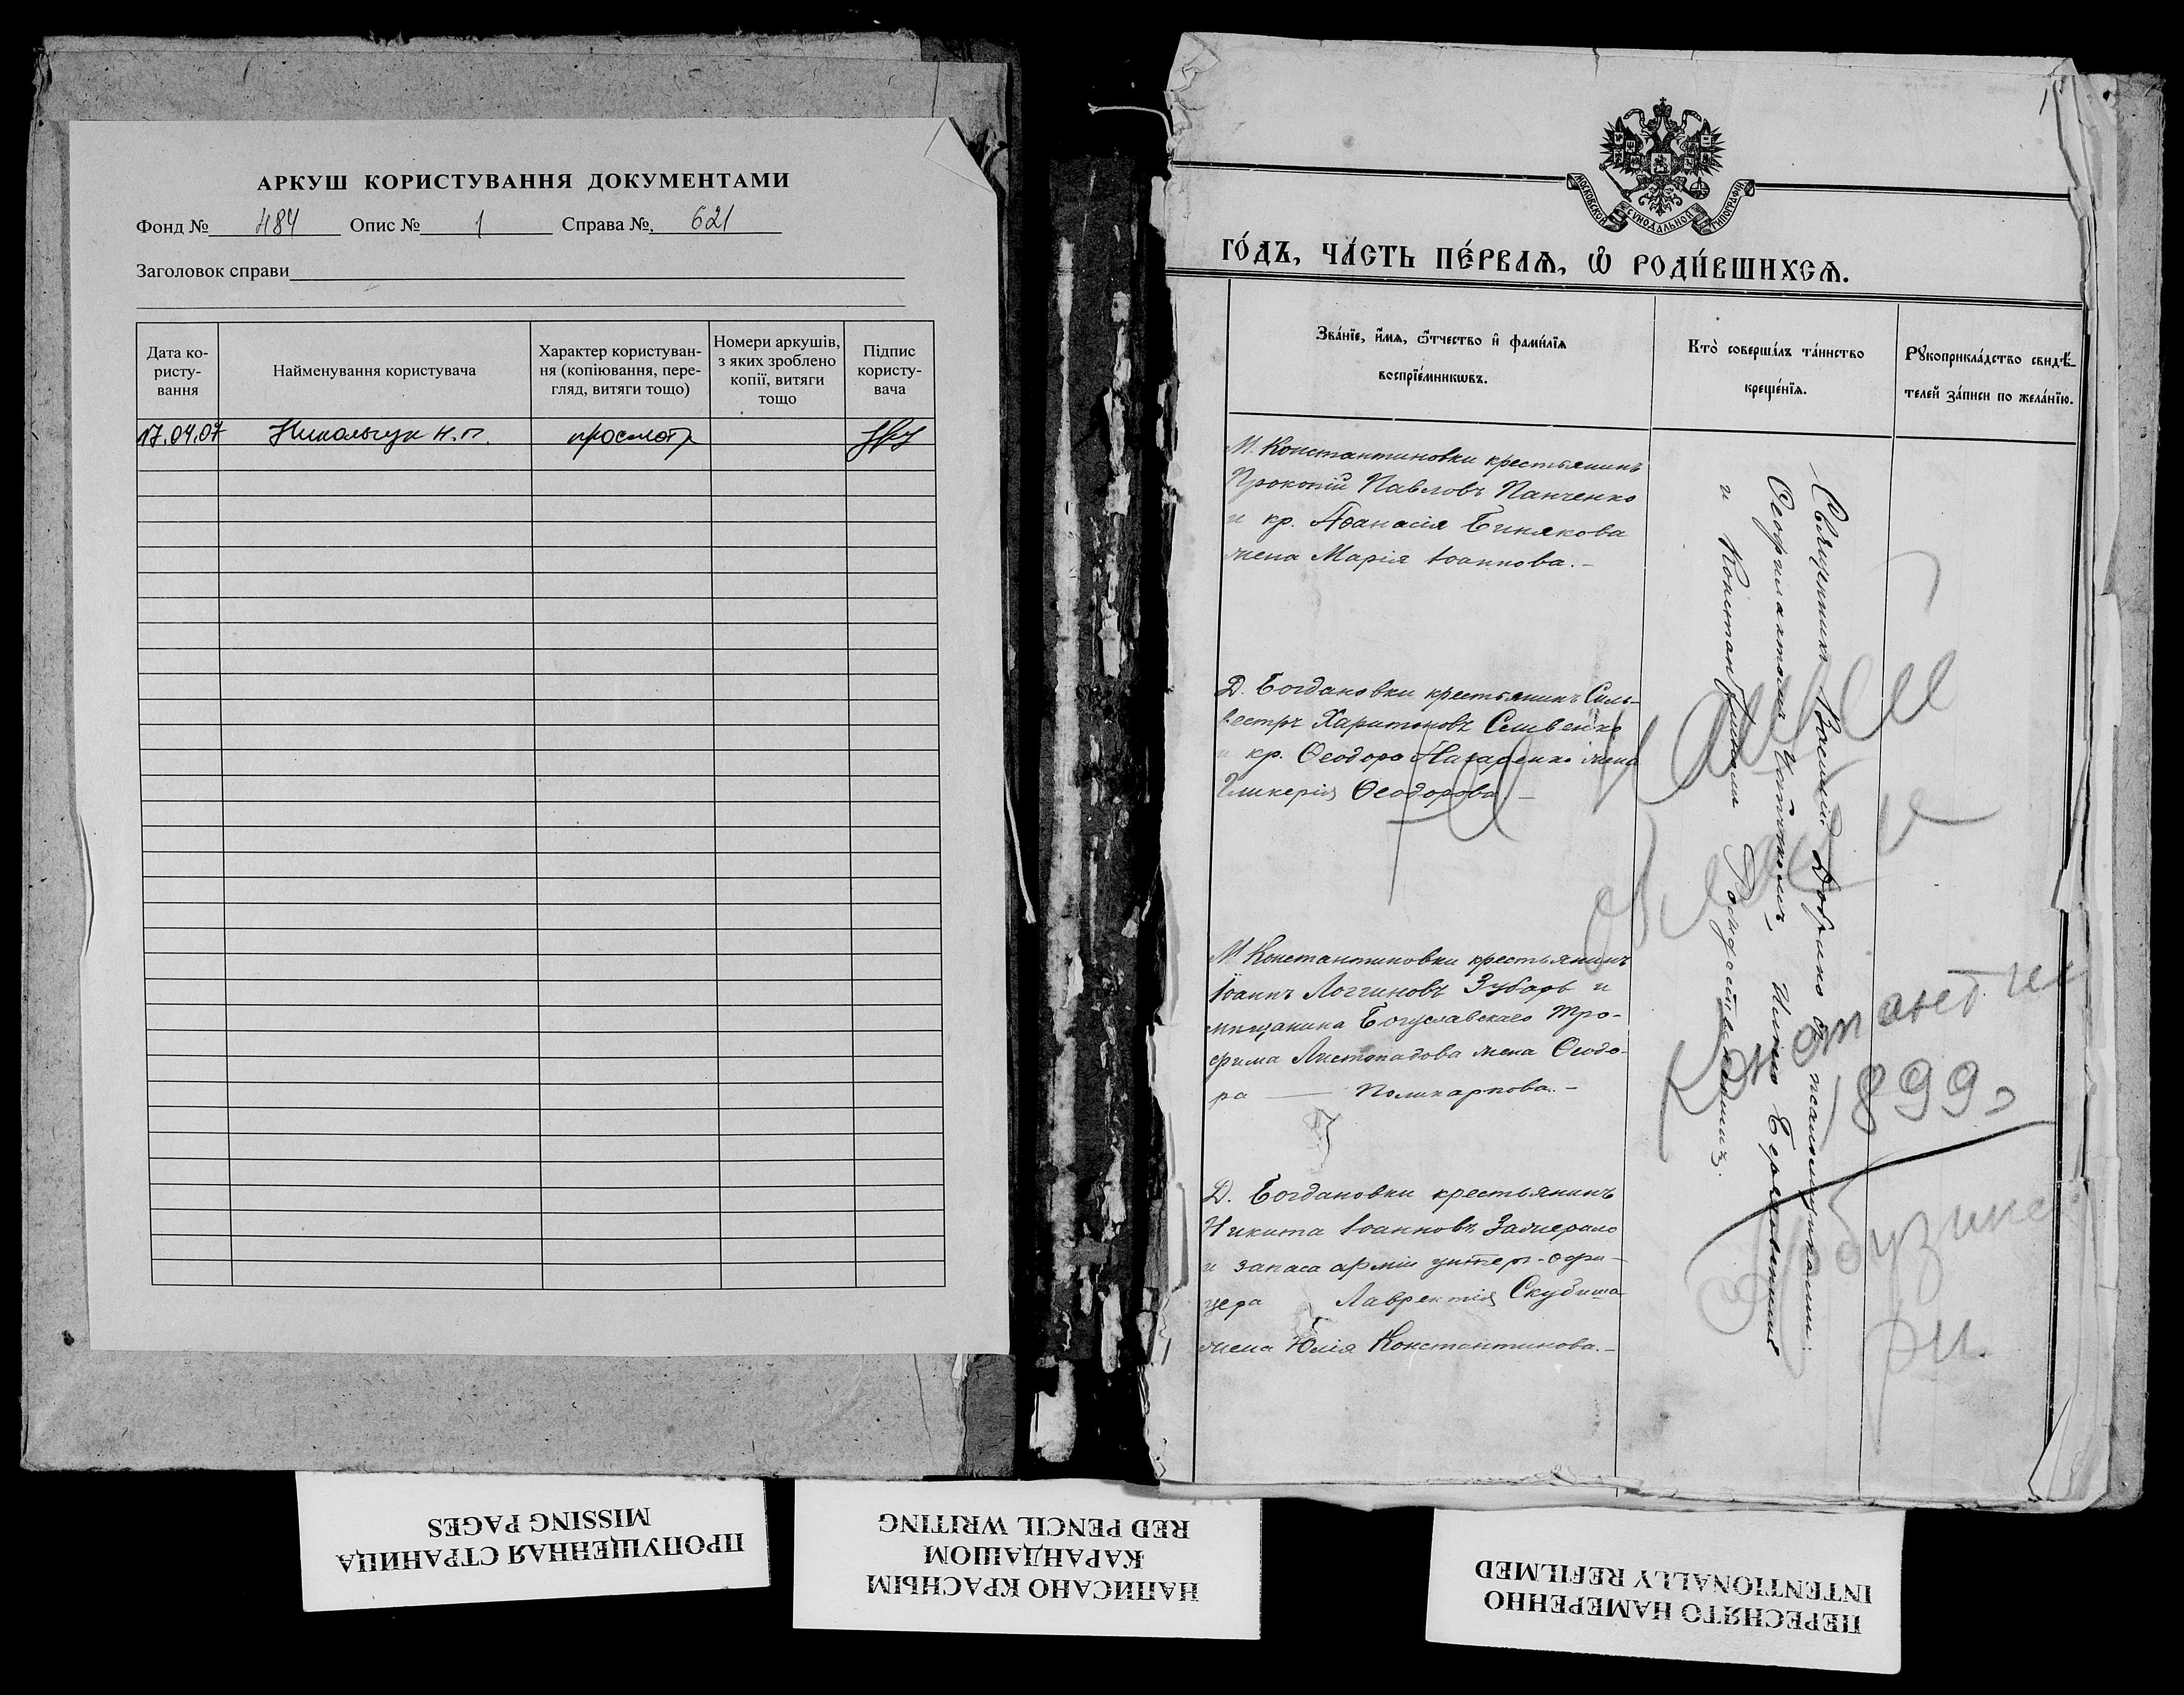 АРКУШ КОРИСТУВАННЯ ДОКУМЕНТАМИ
Фонд № 484 Опис № 1 Справа № 621
Заголовок справи
Дата ко-
ристу-
вання
Найменування користувача
Характер користуван-
ня (копіювання, пере-
гляд, витяги тощо)
Номери аркушів,
з яких зроблено
копії, витяги
тощо
Підпис
користу-
вача
17.04.07 Никольчук Н.П. просмотр
МОСКОВСКОЙ СѴНОДАЛЬНОЙ ТИПОГРАФІИ
ГО́ДЪ, ЧА́СТЬ ПЕ́РВАѦ, Ѡ҆ РОДИ́ВШИХСѦ.
Зва́нїе, и҆́мѧ, ѻ҆́тчество и҆ фами́лїѧ
воспрїе́мникѡвъ.
Кто̀ соверша́лъ та́инство
креще́нїѧ.
Рꙋкоприкла́дство свидѣ́-
телей за́писи по жела́нїю.
М. Константиновки крестьянинъ
Прокопій Павловъ Панченко
и кр. Аѳанасія Бинякова
жена Марія Іоаннова.-
Д. Богдановки крестьянинъ Силь-
вестръ Харитоновъ Сливенко
и кр. Ѳеодора Назаренко жена
Гликерія Ѳеодорова.-
М. Константиновки крестьянинъ
Іоаннъ Логгиновъ Зубарь и
мѣщанина Богуславскаго Тро-
фима Листопадова жена Ѳеодо-
ра — Поликарпова.-
Д. Богдановки крестьянинъ
Никита Іоанновъ
и запаса арміи унтеръ-офи-
цера Лаврентія Скубиша
жена Юлія Константинова.-
Священникъ Василій съ псаломщиками:
Илією
и Константиномъ Рождественскимъ.
1899
ПРОПУЩЕННАЯ СТРАНИЦА
MISSING PAGES
НАПИСАНО КРАСНЫМ
КАРАНДАШОМ
RED PENCIL WRITING
ПЕРЕСНЯТО НАМЕРЕННО
INTENTIONALLY REFILMED